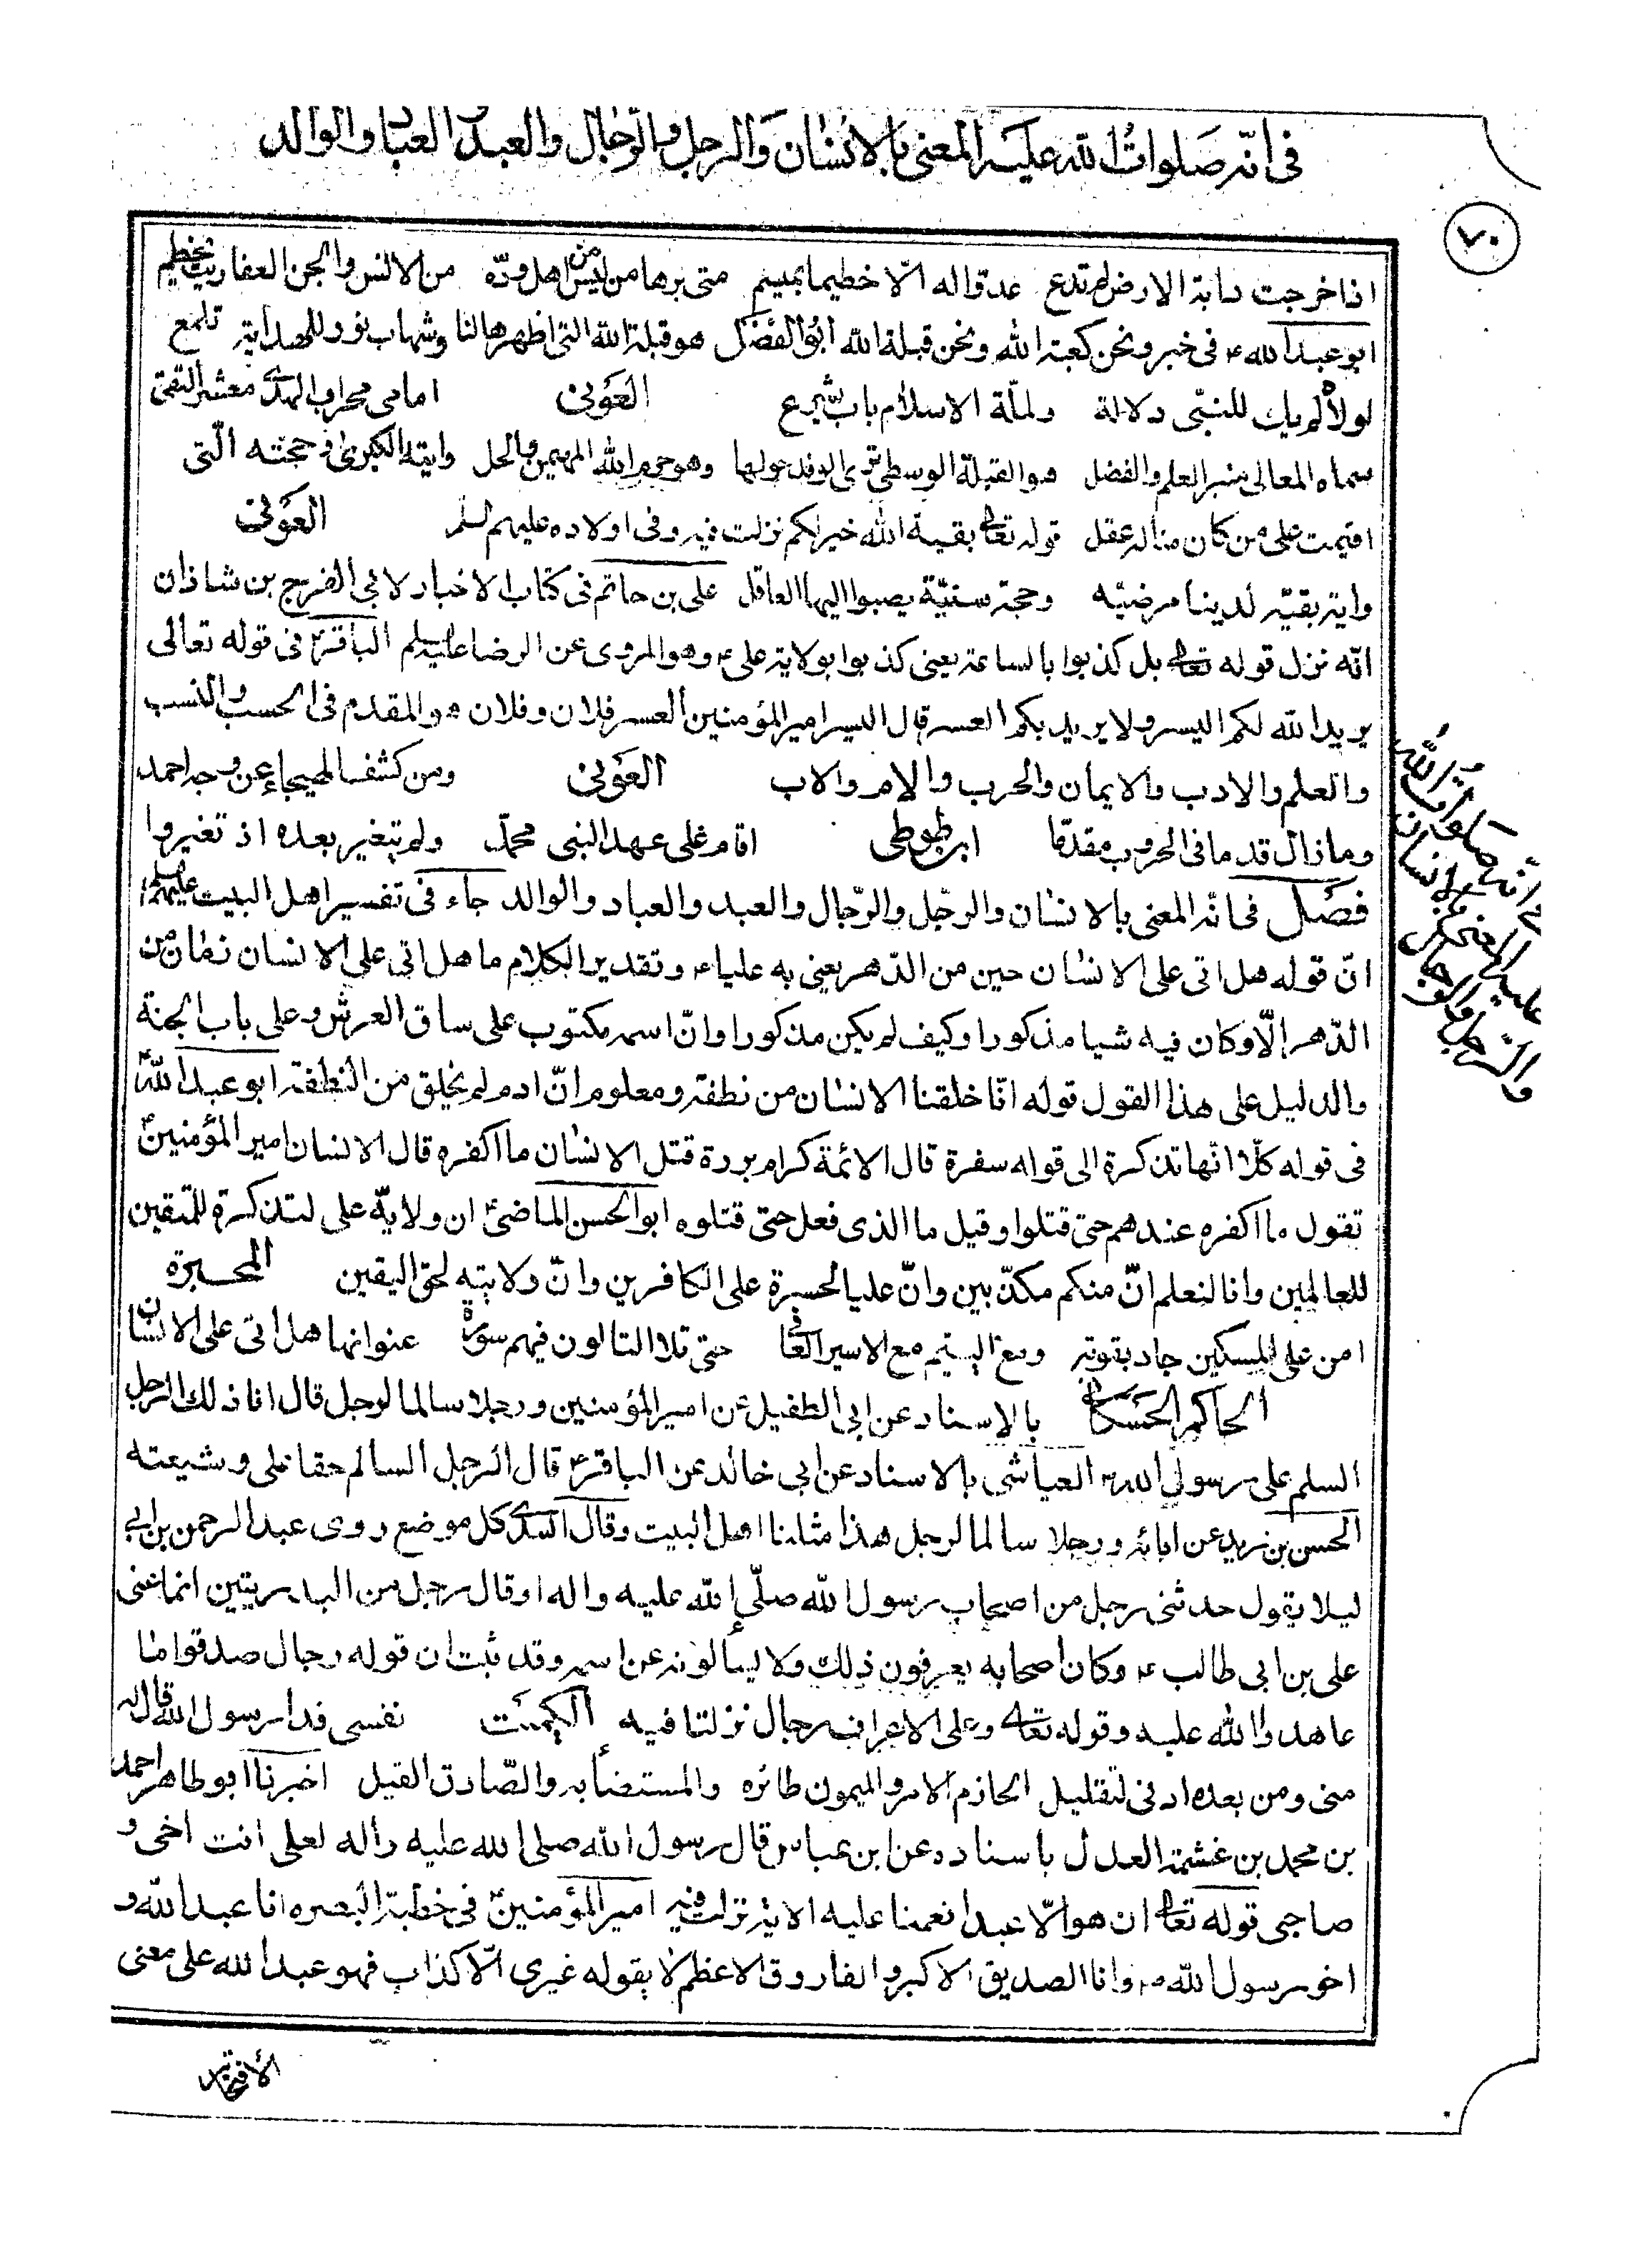 في انّه صلوات الله عليه المعنى بالانسان والرجل والرّجال والعبد والعباد والوالد
٧٠
اذا خرجت دابة الارض لم تدع عدوّا له الّا خطيما بميسم متى يرها من ليس من اهل ودّه من الانس والجن العفاريت يخطم
ابو عبد الله ع في خبر ونحن كعبة الله ونحن قبلة الله ابو الفضل هو قبلة الله التي اظهرها لنا وشهاب نور للهداية تلمع
لولاه لم يك للنبّى دلالة ولملّة الاسلام باب يشرع العونى امامى محراب الهدى معشر التقى
سماء المعالى منبر العلم والفضل هو القبلة الوسطى ترى الوفد حولها وهو حرم الله المهيمن والحل وايته الكبرى وحجته الّتى
اقيمت على من كان منا له عقل قوله تعالى بقية الله خير لكم نزلت فيه وفى اولاده عليهم السلم العونى
واية بقيّه لدينا مرضيّه وحجة سنيّة يصبوا اليها العاقل على بن حاتم فى كتاب الاخبار لابي الفرج بن شاذان
انّه نزل قوله تعالى بل كذبوا بالساعة يعنى كذبوا بولاية على ع وهو المروى عن الرضا عليه السلم الباقر ع فى قوله تعالى
يريد الله لكم اليسر ولا يريد بكم العسر قال اليسر امير المؤمنين العسر فلان وفلان هو المقدم فى الحسب والنسب
والعلم والادب والايمان والحرب والام والاب العونى ومن كشف الهيجاء عن وجه احمد
وما زال قدما فى الحروب مقدّما ابن طوطى اقام على عهد النبى محمّد ولم يتغير بعده اذ تغيروا
فصل فى انّه المعنى بالانسان والرجّل والرّجال والعبد والعباد والوالد جاء فى تفسير اهل البيت عليهم السلم
انّ قوله هل اتى على الانسان حين من الدّهر يعنى به عليا ع وتقدير الكلام ما هل اتى على الانسان زمان من
الدّهر الّا وكان فيه شيا مذكورا وكيف لم يكن مذكورا وانّ اسمه مكتوب على ساق العرش وعلى باب الجنة
والدليل على هذا القول قوله انّا خلقنا الانسان من نطفة ومعلوم انّ ادم لم يخلق من النطفة ابو عبد الله ع
فى قوله كلّا انّها تذكرة الى قوله سفرة قال الائمة كرام بررة قتل الانسان ما اكفره قال الانسان امير المؤمنين ع
تقول ما اكفره عندهم حتى قتلوا وقيل ما الذى فعل حتى قتلوه ابو الحسن الماضى ع ان ولاية على لتذكرة للمتقين
للعالمين وانا لنعلم انّ منكم مكذّبين وانّ عليا لحسرة على الكافرين وانّ ولايته لحق اليقين المحبرة
امن على المسكين جاد بقوته ومع اليتيم مع الاسير العانى حتى تلا التالون فيهم سورة عنوانها هل اتى على الانسان
الحاكم الحسكانى بالاسناد عن ابى الطفيل عن امير المؤمنين ورجلا سالما لرجل قال انا ذلك الرجل
السلم على رسول الله ص العياشى بالاسناد عن ابى خالد عن الباقر ع قال الرجل السالم حقا على وشيعته
الحسن بن زيد عن ابائه ورجلا سالما لرجل هذا مثلنا اهل البيت وقال السدى كل موضع روى عبد الرحمن بن ابي
ليلا يقول حدثنى رجل من اصحاب رسول الله صلّى الله عليه واله او قال رجل من البدريتين انما عنى
على بن ابى طالب ع وكان اصحابه يعرفون ذلك ولا يسالونه عن اسمه وقد ثبت ان قوله رجال صدقوا ما
عاهدوا الله عليه وقوله تعالى وعلى الاعراف رجال نزلتا فيه الكميت نفسى فدا رسول الله قال له
منى ومن بعده ادنى لتقليل الحازم الامر والميمون طائره والمستضأ به والصّادق القيل اخبرنا ابو طاهر احمد
بن محمد بن غشمة العدل باسناده عن ابن عباس قال رسول الله صلى الله عليه واله لعلى انت اخى و
صاحبى قوله تعالى ان هو الّا عبد انعمنا عليه الاية نزلت فيه امير المؤمنين ع فى خطبة البصره انا عبد الله و
اخو رسول الله ص وانا الصديق الاكبر والفاروق الاعظم لا يقوله غيرى الّا كذاب فهو عبد الله على معنى
فى انّه صلوات الله
عليه المعنى بالانسان
والرجل والرجال
الافتخار